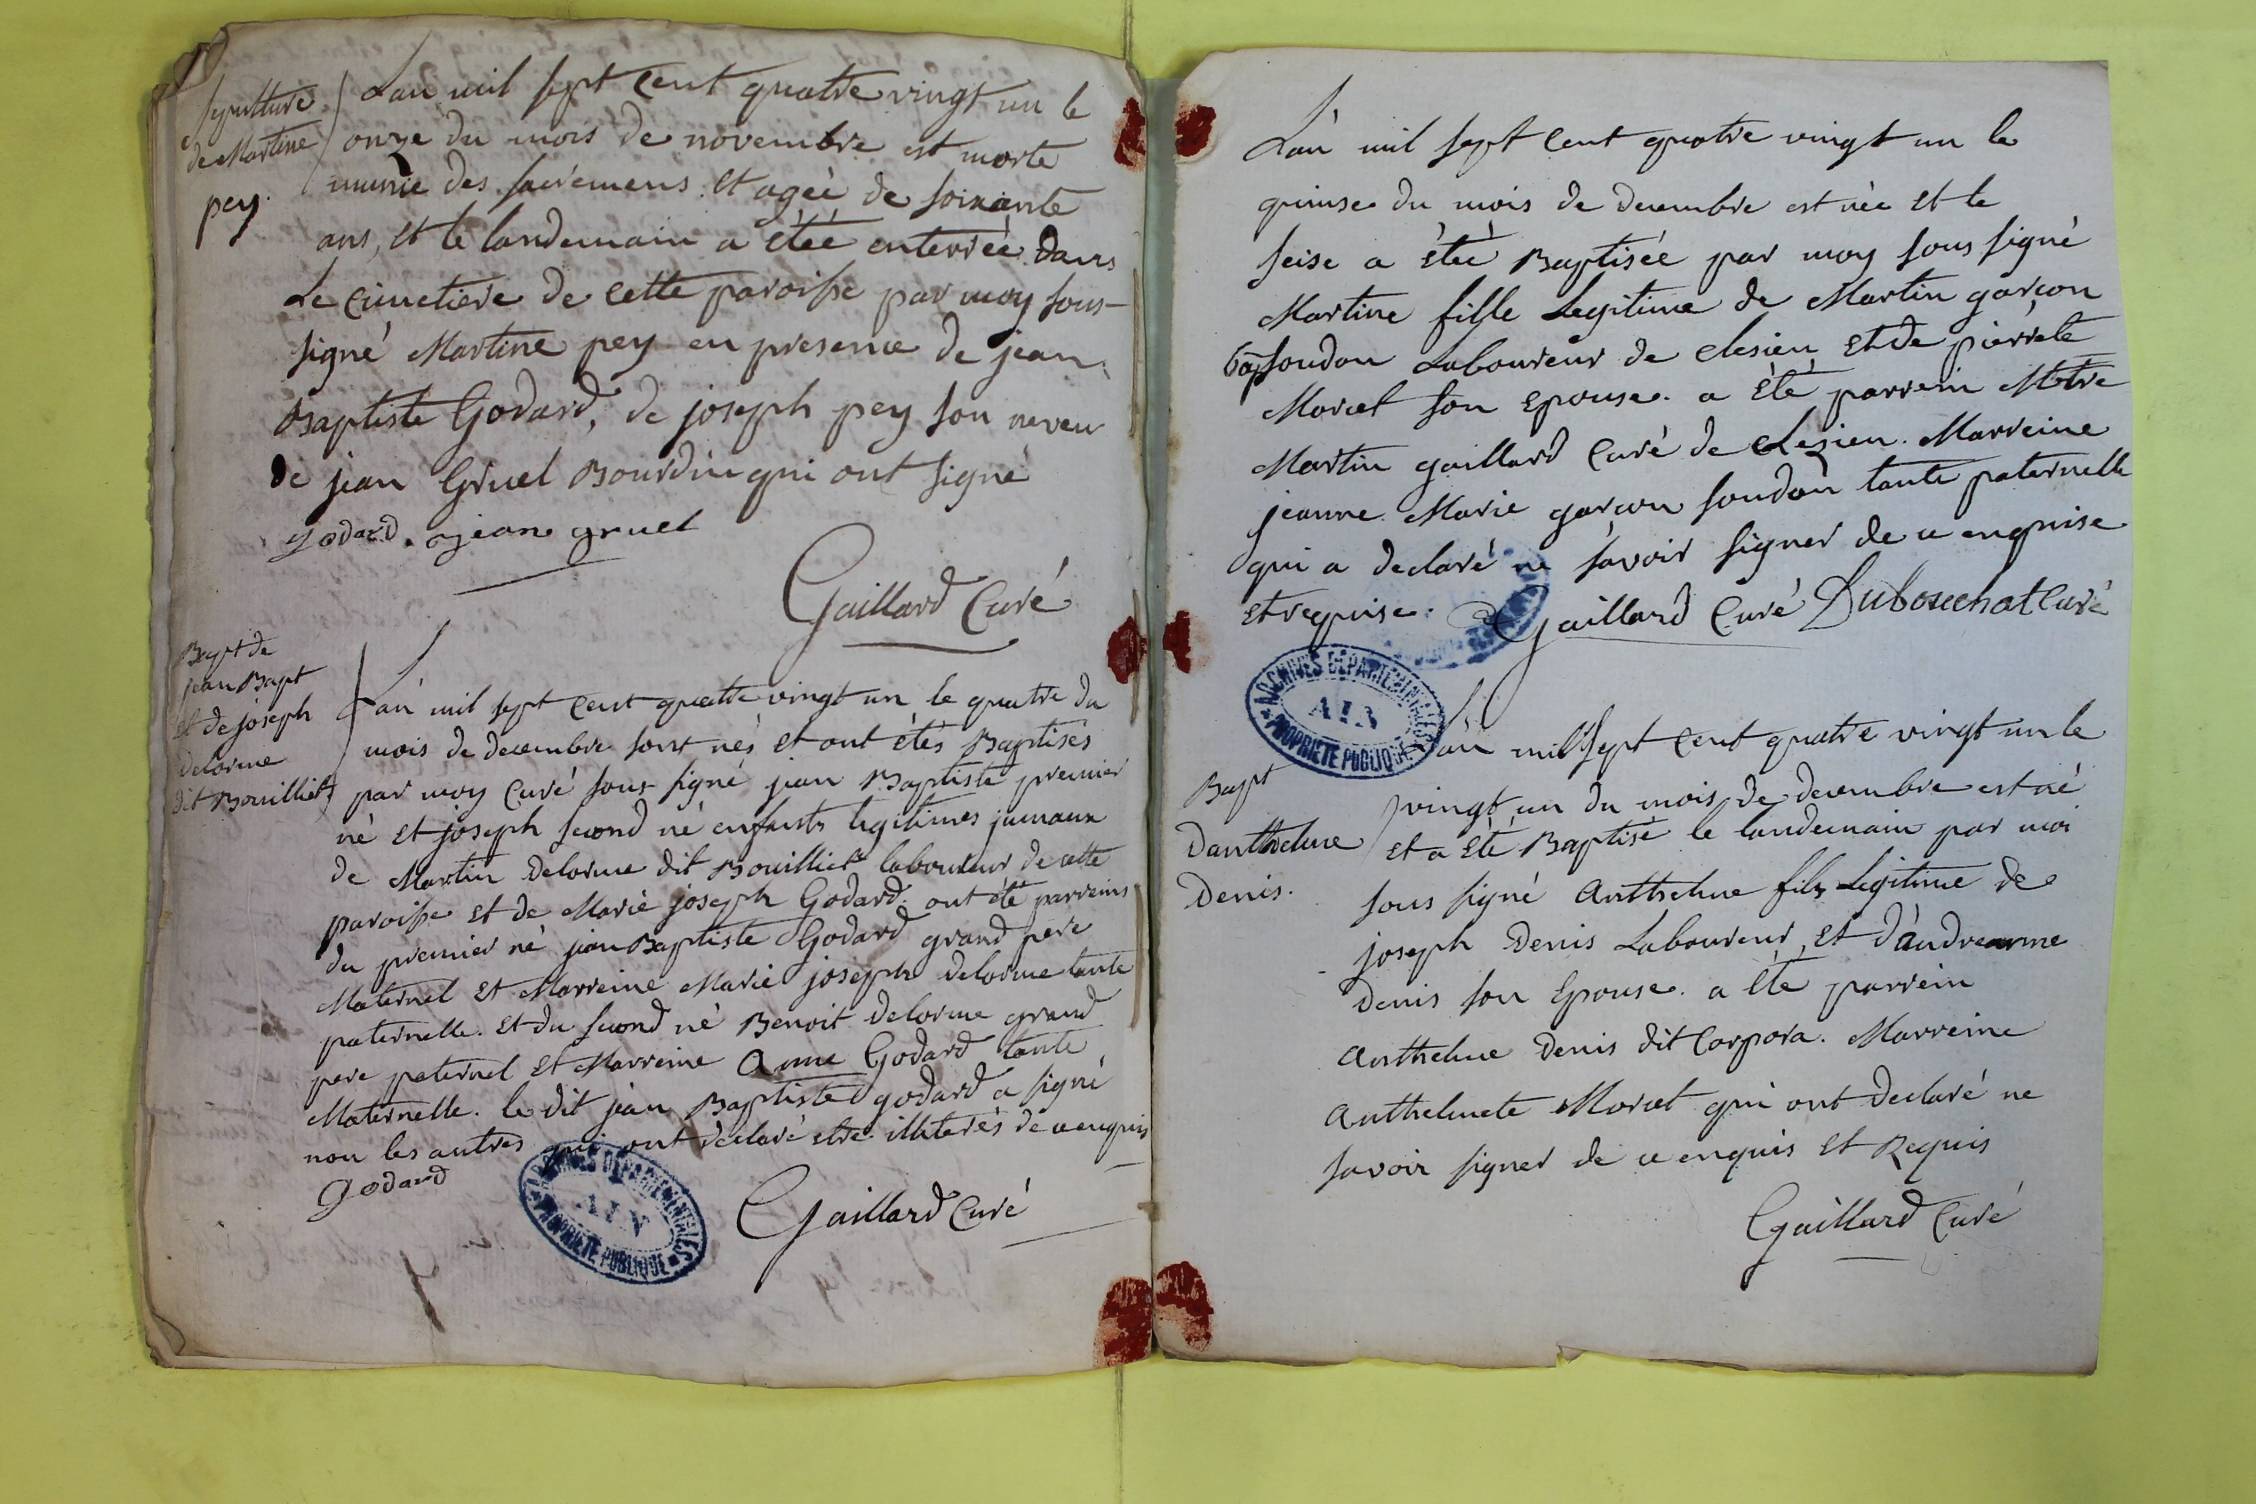 sepulture
de Martine
pey.
Lan mil sept cent quatre vingt un le
onze du mois de novembre est morte
munie des sacremens et ageé de soixante
ans, et le landemain a étéé enterréé dans
Le cimetiere de cette paroisse par moy sous-
signé Martine pey en presence de jean
Baptiste Godard, de joseph pey son neveu
de jean Gruel Bourdin qui ont signé
godard. jean gruel
Gaillard Curé
Bapt de
jean Bapt
et de joseph
delorme
dit Bouilliet
Lan mil sept cent quatre vingt un le quatre du
mois de decembre sont nés et ont étés Baptisés
par moy curé sous signé jean Baptiste premier
né et joseph second né enfants legitimes jumaux
de Martin Delorme dit Bouilliet laboureur de cette
paroisse et de Marie joseph Godard. ont été parreins
du premier né jean Baptiste Godard grand pere
Maternel et Marreine Marie joseph delorme tante
paternelle. et du second né Benoit delorme grand
pere paternel et Marreine Anne Godard tante
Maternelle. le dit jean Baptiste godard a signé
non les autres qui ont declaré etre illiterés de ce enquis
Godard
Gaillard Curé
ARCHIVES DÉPARTEMENTALES
AIN
PROPRIÉTÉ PUBLIQUE
Lan mil sept cent quatre vingt un le
quinse du mois de decembre est née et le
seise a étéé Baptiséé par moy sous signé
Martine fille Legitime de Martin garçon
soudon Laboureur de clesieu et de pierrete
Moret son epouse. a été parrein
Martin gaillard Curé de clesieu. Marreine
jeanne Marie garçon soudon tante paternelle
qui a declaré ne savoir signer de ce enquise
et requise.
Gaillard Curé Dubouchat Curé
ARCHIVES DÉPARTEMENTALES
AIN
PROPRIÉTÉ PUBLIQUE
Bapt
Danthelme
Denis.
Lan mil sept cent quatre vingt un le
vingt un du mois de decembre est né
et a été Baptisé le landemain par moi
sous signé Anthelme fils Legitime de
joseph Denis Laboureur, et d'
Denis son Epouse. a été parrein
Anthelme Denis dit Corpora. Marreine
Anthelmete Moret qui ont declaré ne
savoir signer de ce enquis et Requis
Gaillard Curé